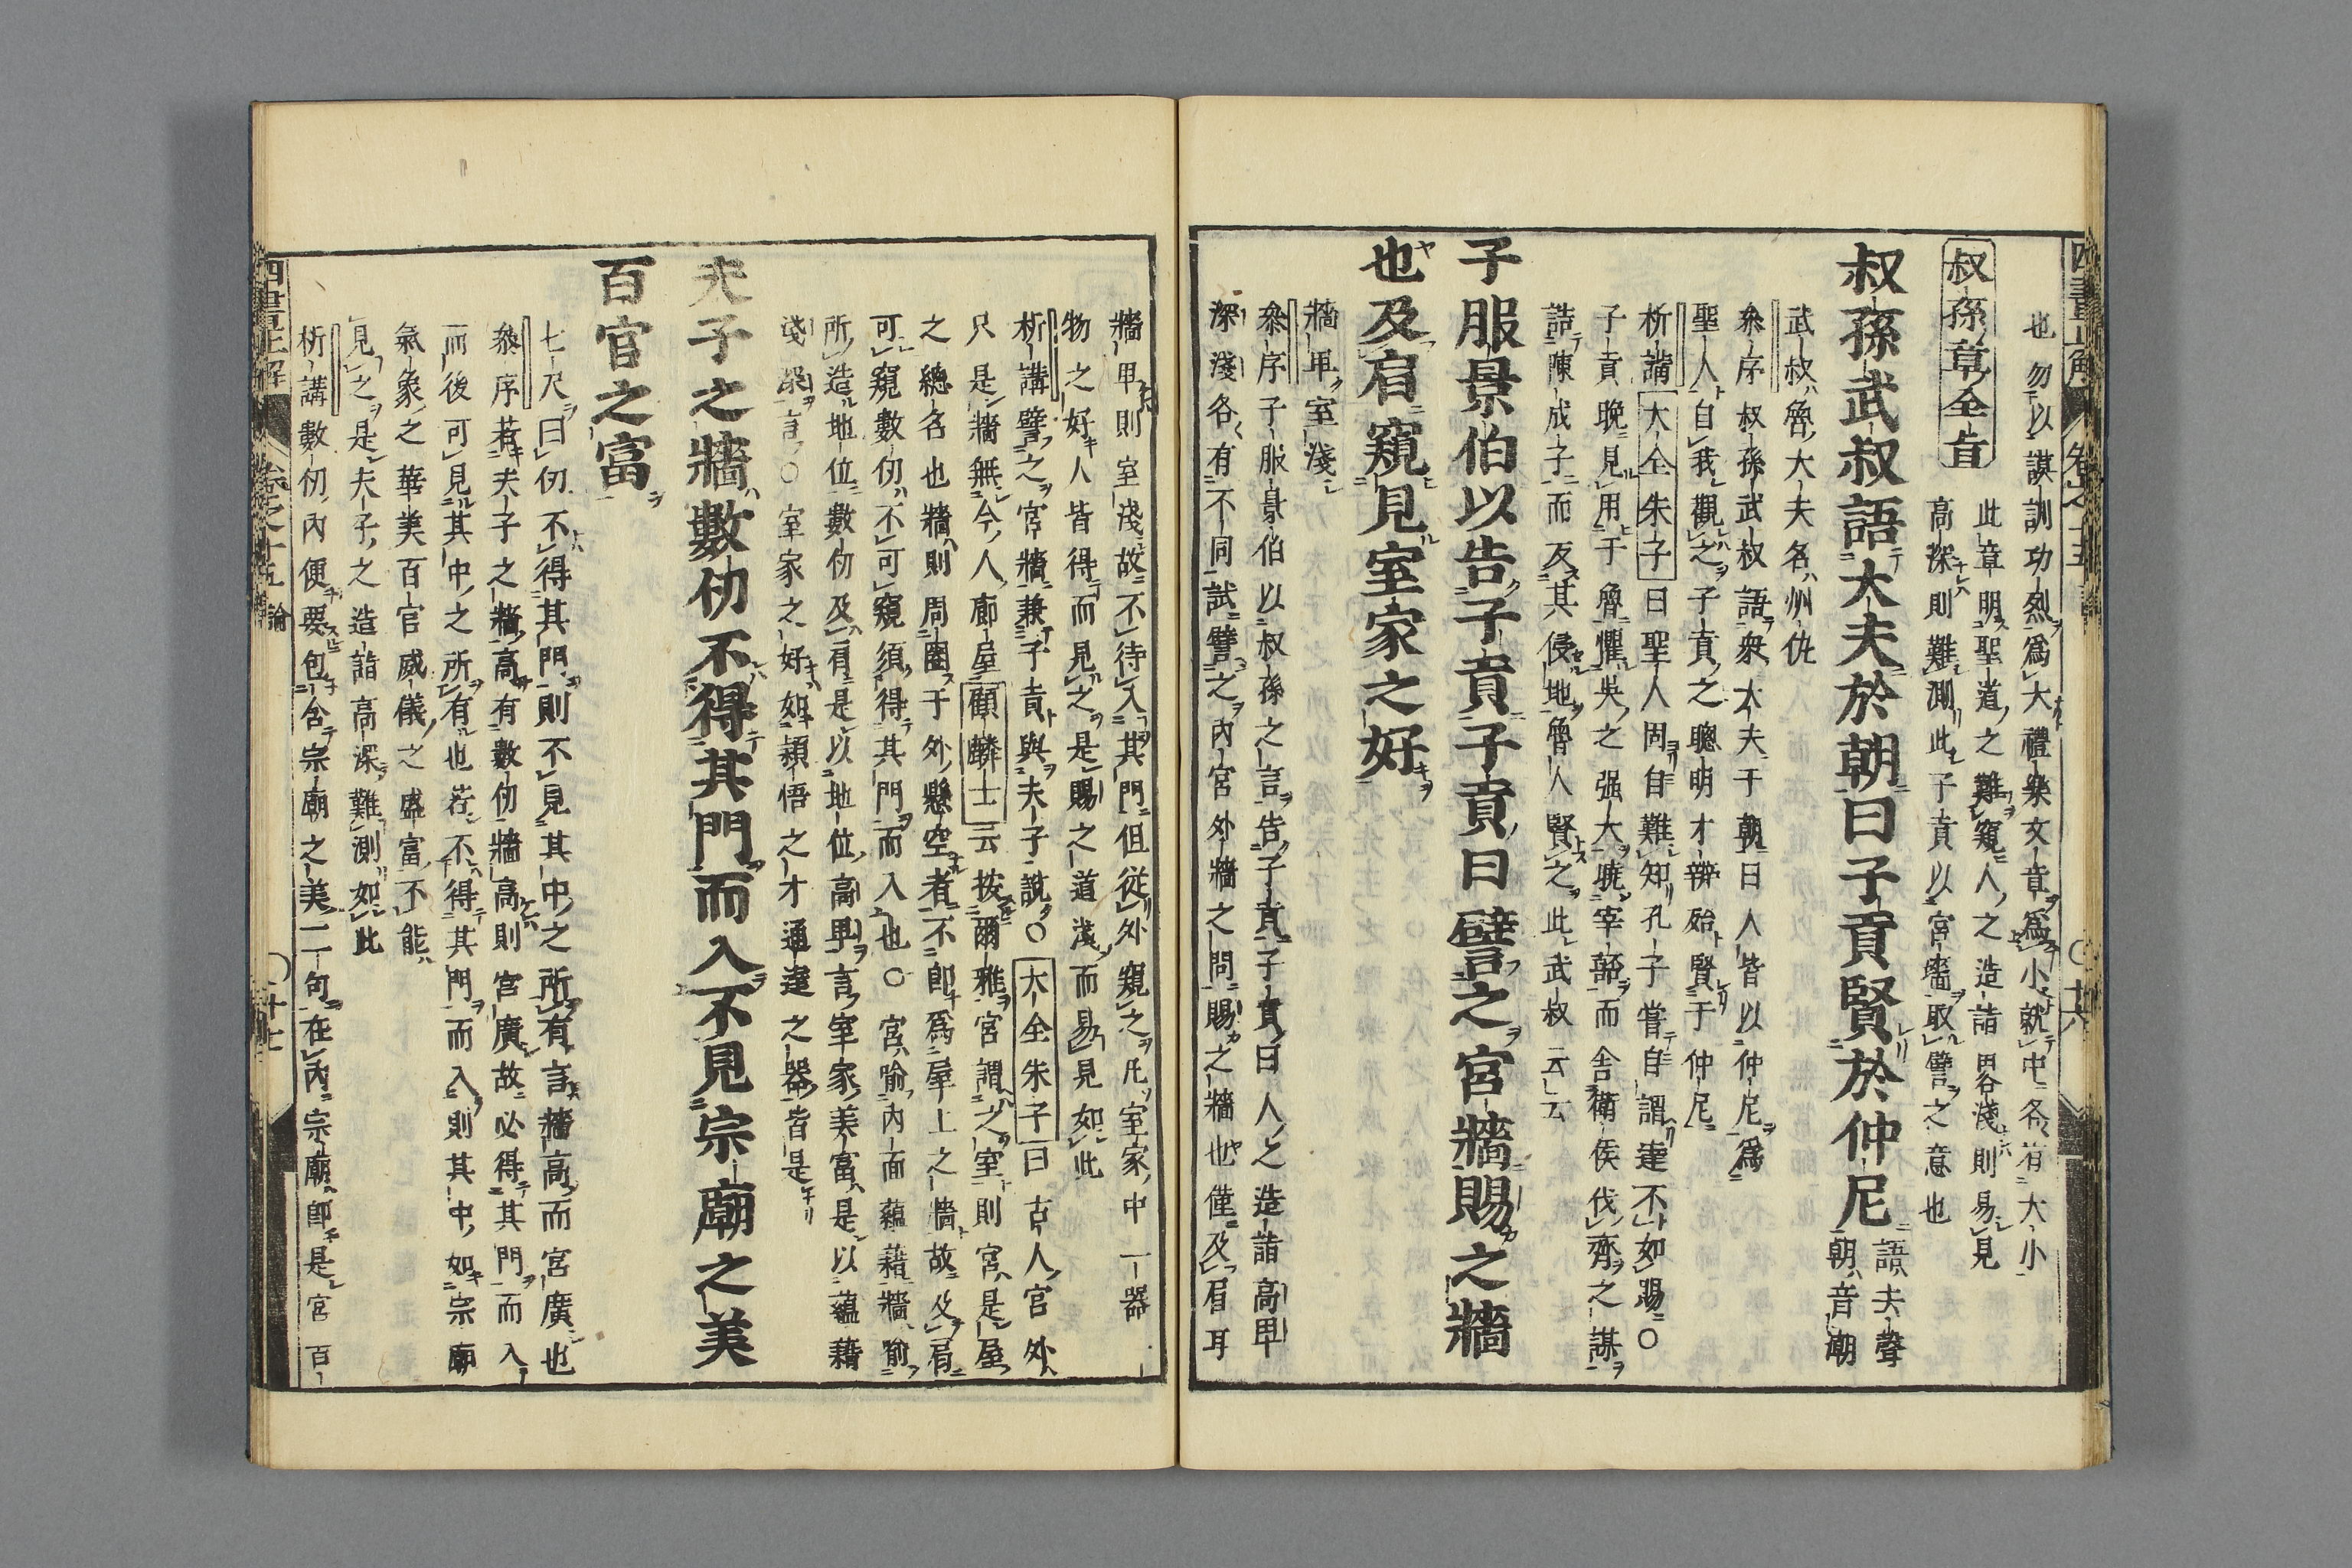 也勿以謨訓功烈爲大禮樂文章爲小就中各有大小
叔孫章全旨
此章明聖道之難窺人之造詣畧淺則易見
高深則難測此子貢以宮墻取譬之意也
叔孫武叔語大夫於朝曰子貢賢於仲尼
語夫聲
朝音潮
武叔魯大夫名州仇
叅序叔孫武叔語衆大夫于朝曰人皆以仲尼爲
聖人自我觀之子貢之聰明才辯殆賢于仲尼
析講大全朱子曰聖人固自難知孔子嘗自謂達不如賜○
子貢晚見用于魯懼吳之强大曉宰嚭而舍衛侯伐齊之謀
詰陳成子而反其侵地魯人賢之此武叔云云
子服景伯以告子貢子貢曰譬之宮牆賜之牆
也及肩窺見室家之好
牆卑室淺
叅序子服景伯以叔孫之言告子貢子貢曰人之造詣高卑
深淺各有不同試譬之內宮外牆之間賜之牆也僅及肩耳
牆卑則室淺故不待入其門但從外窺之凡室家中一器一
物之好人皆得而見之是賜之道淺而易見如此
析講譬之宮牆兼子貢與夫子說○大全朱子曰古人宮外
只是牆無今人廊屋顧麟士云按爾雅宮謂之室則宮是屋
之總名也牆則周圍于外懸空者不卽爲屋上之牆故及肩
可窺數仞不可窺須得其門而入也○宮喻內面蘊藉牆喻
所造地位數仞及肩是以地位高卑言室家美富是以蘊藉
淺深言○室家之好如穎悟之才通達之器皆是
夫子之牆數仞不得其門而入不見宗廟之美
百官之富
七尺曰仞不得其門則不見其中之所有言牆高而宮廣也
叅序若夫子之牆高有數仞牆高則宮廣故必得其門而入
而後可見其中之所有也若不得其門而入則其中如宗廟
氣象之華美百官威儀之盛富不能
見之是夫子之造詣高深難測如此
析講數仞內便要包含宗廟之美二句在內宗廟卽是宮百